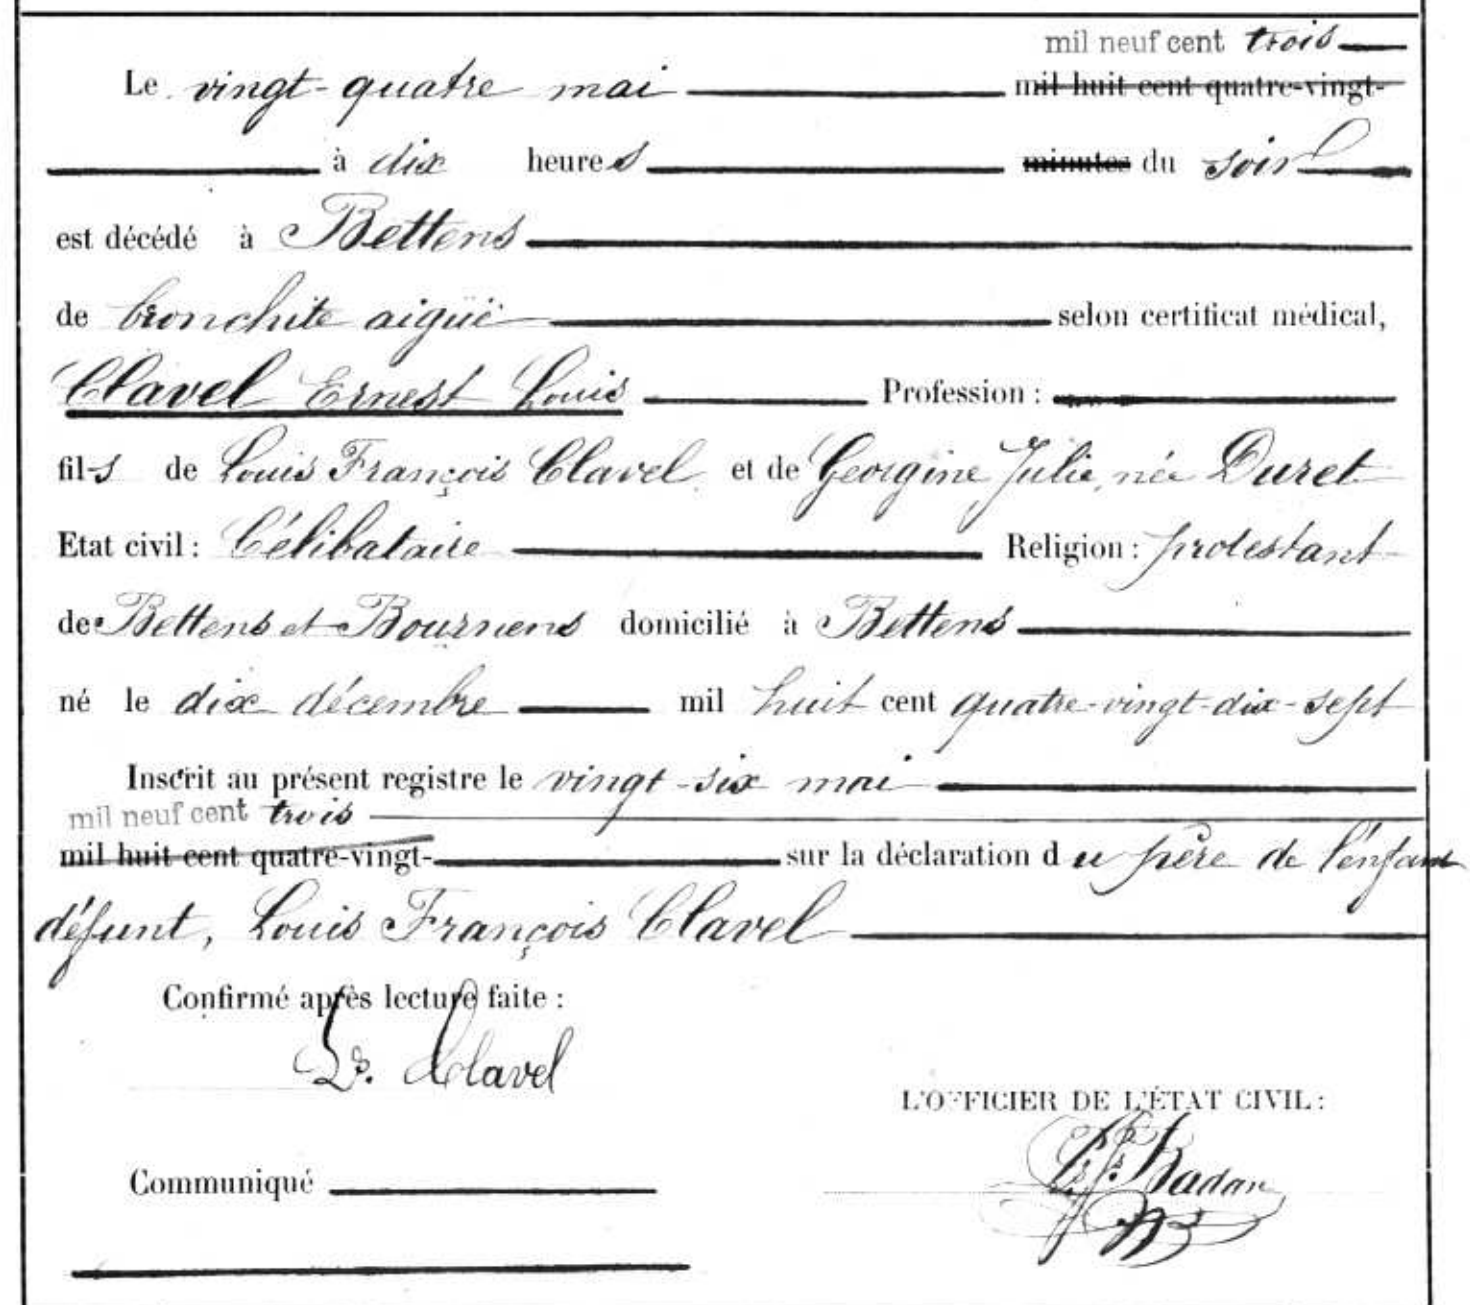 mil neuf cent trois
Le vingt-quatre mai mil huit cent quatre-vingt-
à dix heures minutes du soir
est décédé à Bettens
de bronchite aigüe selon certificat médical,
Clavel Ernest Louis Profession :
fils de Louis François Clavel et de Georgine Julie, née Duret
Etat civil : Célibataire Religion : protestant
de Bettens et Bournens domicilié à Bettens
né le dix décembre mil huit cent quatre-vingt-dix-sept
Inscrit au présent registre le vingt-six mai
mil neuf cent trois
mil huit cent quatre-vingt- sur la déclaration du père de l'enfant
défunt, Louis François Clavel
Confirmé après lecture faite :
Ls. Clavel
L'OFFICIER DE L'ÉTAT CIVIL :
Badan
Communiqué